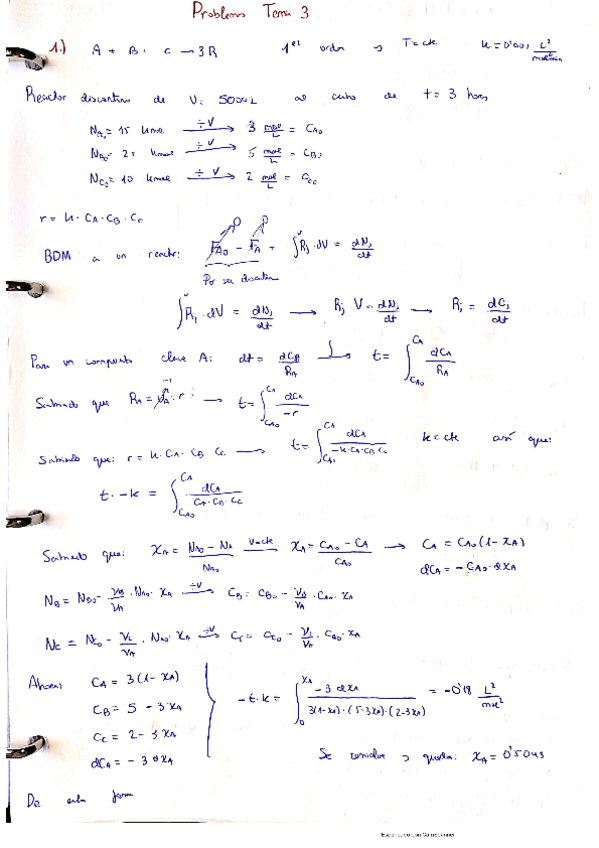 Problemas Tema 3
1.) A + B + C → 3R 1er orden → T=cte k=0'001 L²/mol²·min
Reactor discontinuo de V= 5000L al cabo de t= 3 horas
NA0 = 15 kmol ÷V → 3 mol/L = CA0
NB0 = 25 kmol ÷V → 5 mol/L = CB0
NC0 = 10 kmol ÷V → 2 mol/L =
r = k · CA · CB · CC
BDM a un reactor: FA0 - FA + ∫V Rj · dV = dNj/dt
Por ser discontinuo
∫V Rj · dV = dNj/dt → Rj V = dNj/dt → Rj = dCj/dt
Para un compuesto clave A: dt = dCA/RA ∫ → t = ∫CA0 CA dCA/RA
Sabiendo que RA = νA · r → t = ∫CA0 CA dCA/-r
Sabiendo que: r = k · CA · CB CC → t = ∫CA0 CA dCA/-k·CA·CB·CC k=cte así que:
t · -k = ∫CA0 CA dCA/CA·CB·CC
Sabiendo que: XA = NA0 - NA/NA0 V=cte → XA = CA0 - CA/CA0 → CA = CA0 (1 - XA)
dCA = - CA0 · dXA
NB = NB0 - νB/νA · NA0 · XA ÷V → CB = CB0 - νB/νA · CA0 · XA
NC = NC0 - νC/νA · NA0 · XA ÷V → CC = CC0 - νC/νA · XA
Ahora: CA = 3(1 - XA)
CB = 5 - 3XA
CC = 2 - 3XA
dCA = - 3 dXA
-t·k = ∫0 XA -3 dXA/3(1-XA)·(5-3XA)·(2-3XA) = -0'18 L²/mol²
Se y queda: XA = 0'5043
De esta forma